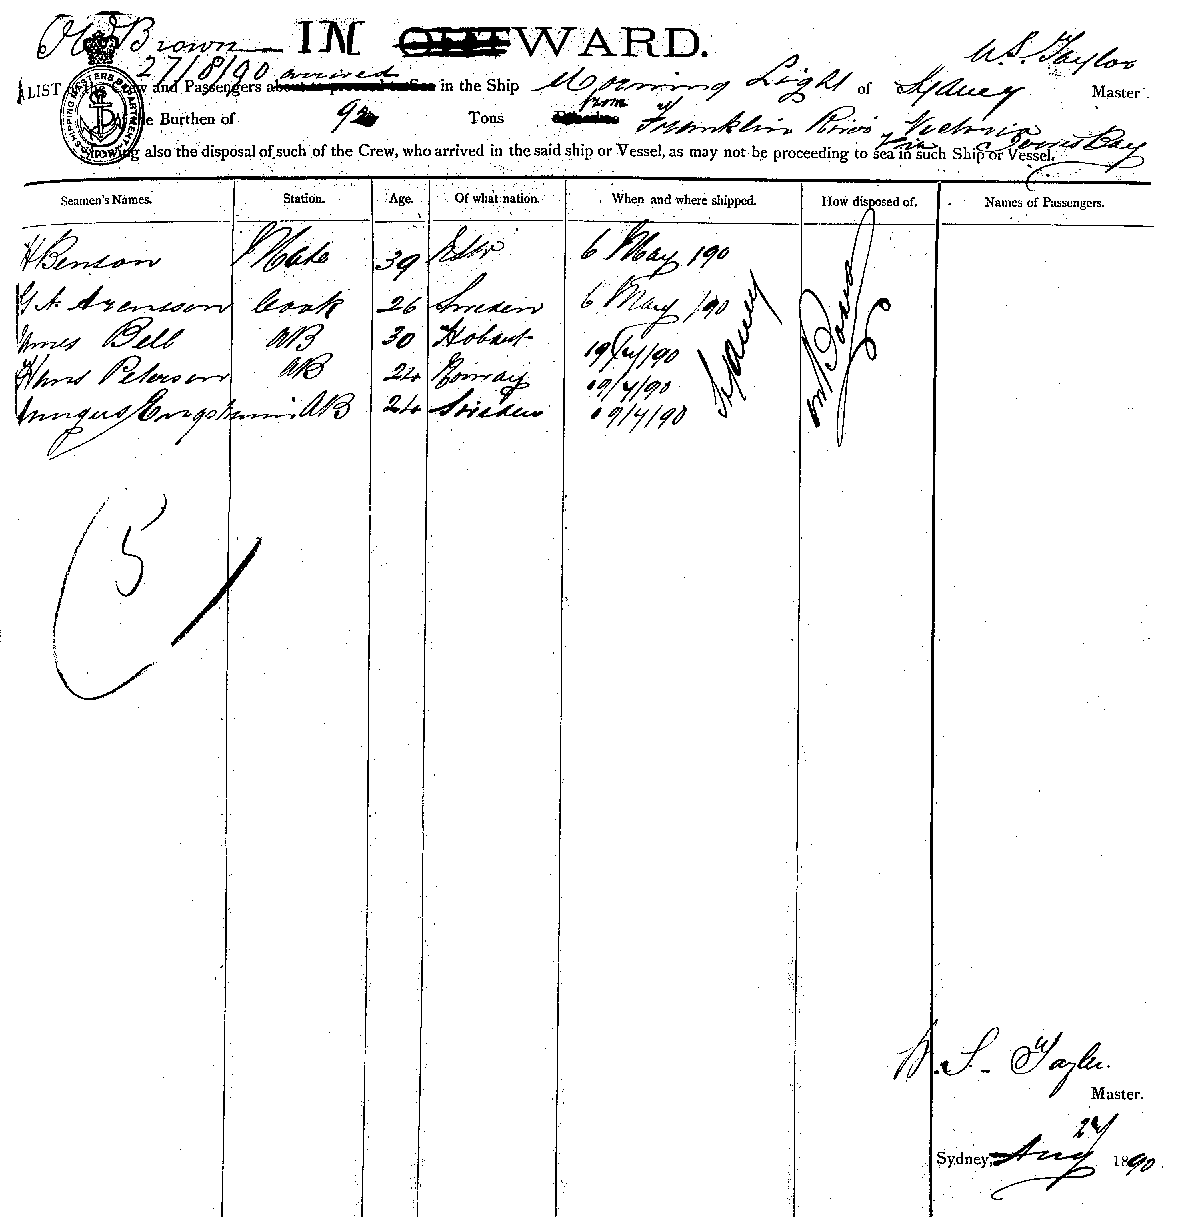 Brown IN OUTWARD.
W. S. Taylor
27/8/90 arrived
A LIST of the Crew and Passengers about to proceed to Sea in the Ship Morning Light of Sydney Master
of the Burthen of 92 Tons from Franklin River Victoria
Showing also the disposal of such of the Crew, who arrived in the said ship or Vessel, as may not be proceeding to sea in such Ship or Vessel. via Jervis Bay
Seamen's Names. Station. Age. Of what nation. When and where shipped. How disposed of. Names of Passengers.
H Benson Mate 39 6 May 190
G A Arensson Cook 26 Sweden 6 May /90
James Bell AB 30 Hobart 19/7/90 Sydney on Board
Hans Peterson AB 24 Norway 19/7/90
AB 24 Sweden 19/7/90
5
W. S. Taylor.
Master.
27
Sydney, Aug 1890